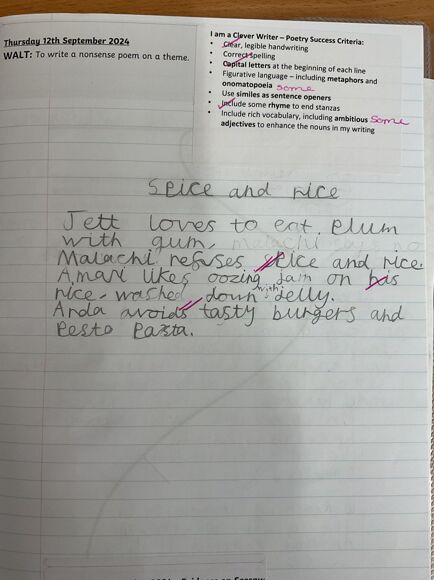 Thursday 12th September 2024
WALT: To write a nonsense poem on a theme.
I am a Clever Writer – Poetry Success Criteria:
• Clear, legible handwriting
• Correct spelling
• Capital letters at the beginning of each line
• Figurative language – including metaphors and
onomatopoeia some
• Use similes as sentence openers
• Include some rhyme to end stanzas
• Include rich vocabulary, including ambitious some
adjectives to enhance the nouns in my writing
Spice and rice
Jett loves to eat. Plum
with gum, malachi says no
Malachi refuses spice and rice.
Amari likes oozing jam on his
rice. washed down with jelly.
Arda avoids tasty burgers and
Pesto Pasta.